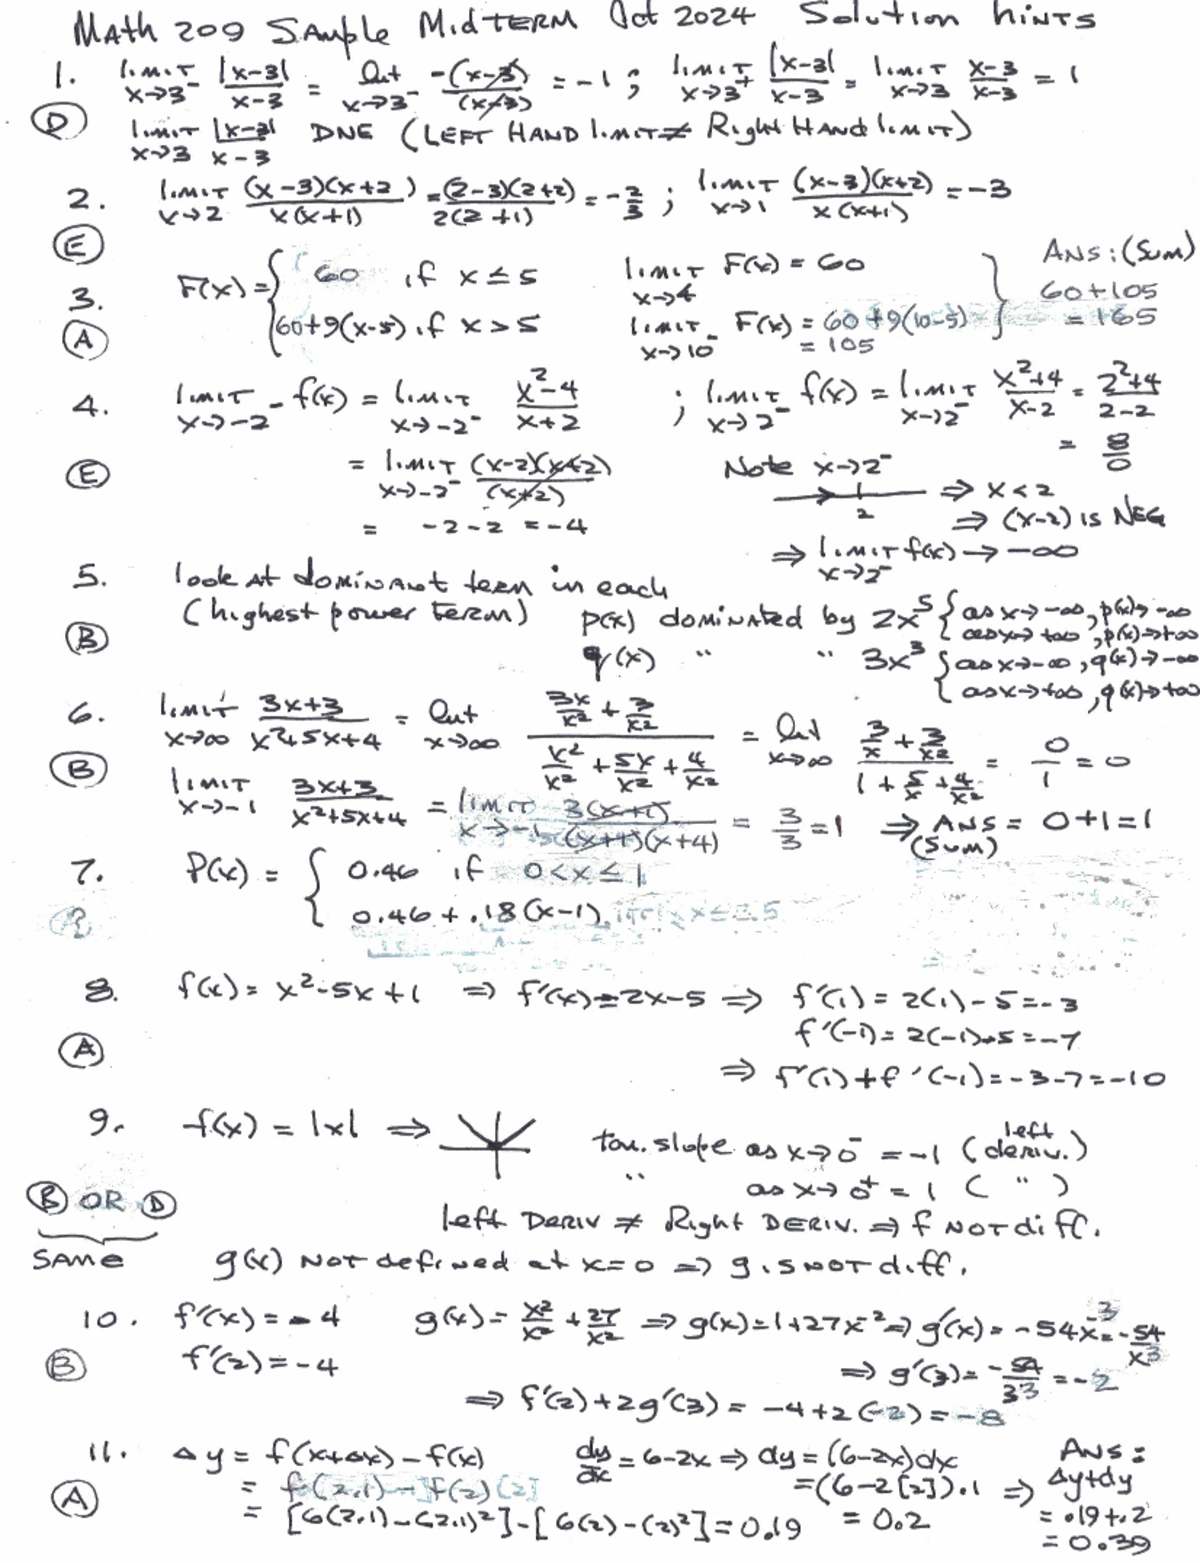 MATH 209 SAMPLE MIDTERM Oct 2024 Solution HINTS
1. limit x→3⁻ |x-3|/x-3 = lut x→3⁻ -(x-3)/(x-3) = -1 ; limit x→3⁺ |x-3|/x-3 = limit x→3 x-3/x-3 = 1
(D) limit x→3 |x-3|/x-3 DNE (LEFT HAND limit ≠ Right Hand limit)
2. limit x→2 (x-3)(x+2)/x(x+1) = (2-3)(2+2)/2(2+1) = -2/3 ; limit x→1 (x-3)(x+2)/x(x+1) = -3
(E)
3. F(x) = { 60 if x ≤ 5 limit x→4 F(x) = 60 } ANS: (SUM)
60+9(x-5) if x > 5 limit x→10⁻ F(x) = 60+9(10-5) 60+105
(A) = 105 = 165
4. limit x→-2⁻ f(x) = limit x→-2⁻ x²-4/x+2 ; limit x→2⁻ f(x) = limit x→2⁻ x²+4/x-2 = 2²+4/2-2
= 8/0
(E) = limit x→-2⁻ (x-2)(x+2)/(x+2) Note x→2⁻
2 ⇒ x<2
= -2-2 = -4 ⇒ (x-2) is NEG
⇒ limit x→2⁻ f(x) → -∞
5. look AT dominant term in each
(highest power term) p(x) dominated by 2x⁵ { as x→-∞, p(x)→-∞
as x→+∞, p(x)→+∞
(B) q(x) " " 3x³ { as x→-∞, q(x)→-∞
as x→+∞, q(x)→+∞
6. limit x→∞ 3x+3/x²+5x+4 = lut x→∞ 3x/x² + 3/x² / x²/x² + 5x/x² + 4/x² = lut x→∞ 3/x + 3/x² / 1 + 5/x + 4/x² = 0/1 = 0
(B) limit x→-1 3x+3/x²+5x+4 = limit x→-1 3(x+1)/(x+1)(x+4) = 3/3 = 1 ⇒ ANS = 0+1=1
(SUM)
7. P(x) = { 0.46 if 0<x≤1
0.46 + .18(x-1)
8. f(x) = x²-5x+1 ⇒ f'(x)=2x-5 ⇒ f'(1) = 2(1)-5=-3
f'(-1) = 2(-1)-5=-7
(A) ⇒ f'(1)+f'(-1)=-3-7=-10
9. f(x) = |x| ⇒ tan. slope as x→0⁻ = -1 (left deriv.)
" as x→0⁺ = 1 ( " )
(B) OR (D) left DERIV ≠ Right DERIV. ⇒ f NOT diff.
SAME g(x) NOT defined at x=0 ⇒ g is NOT diff.
10. f'(x) = -4 g(x) = x²/x² + 27/x² ⇒ g(x)=1+27x⁻² ⇒ g'(x) = -54x⁻³ = -54/x³
(B) f'(2) = -4 ⇒ g'(3) = -54/3³ = -2
⇒ f'(2)+2g'(3) = -4+2(-2) = -8
11. Δy = f(x+Δx)-f(x) dy/dx = 6-2x ⇒ dy = (6-2x)dx ANS:
= f(2.1)-f(2) =(6-2[2]).1 ⇒ Δy+dy
(A) = [6(2.1)-(2.1)²]-[6(2)-(2)²] = 0.19 = 0.2 = .19+.2
= 0.39